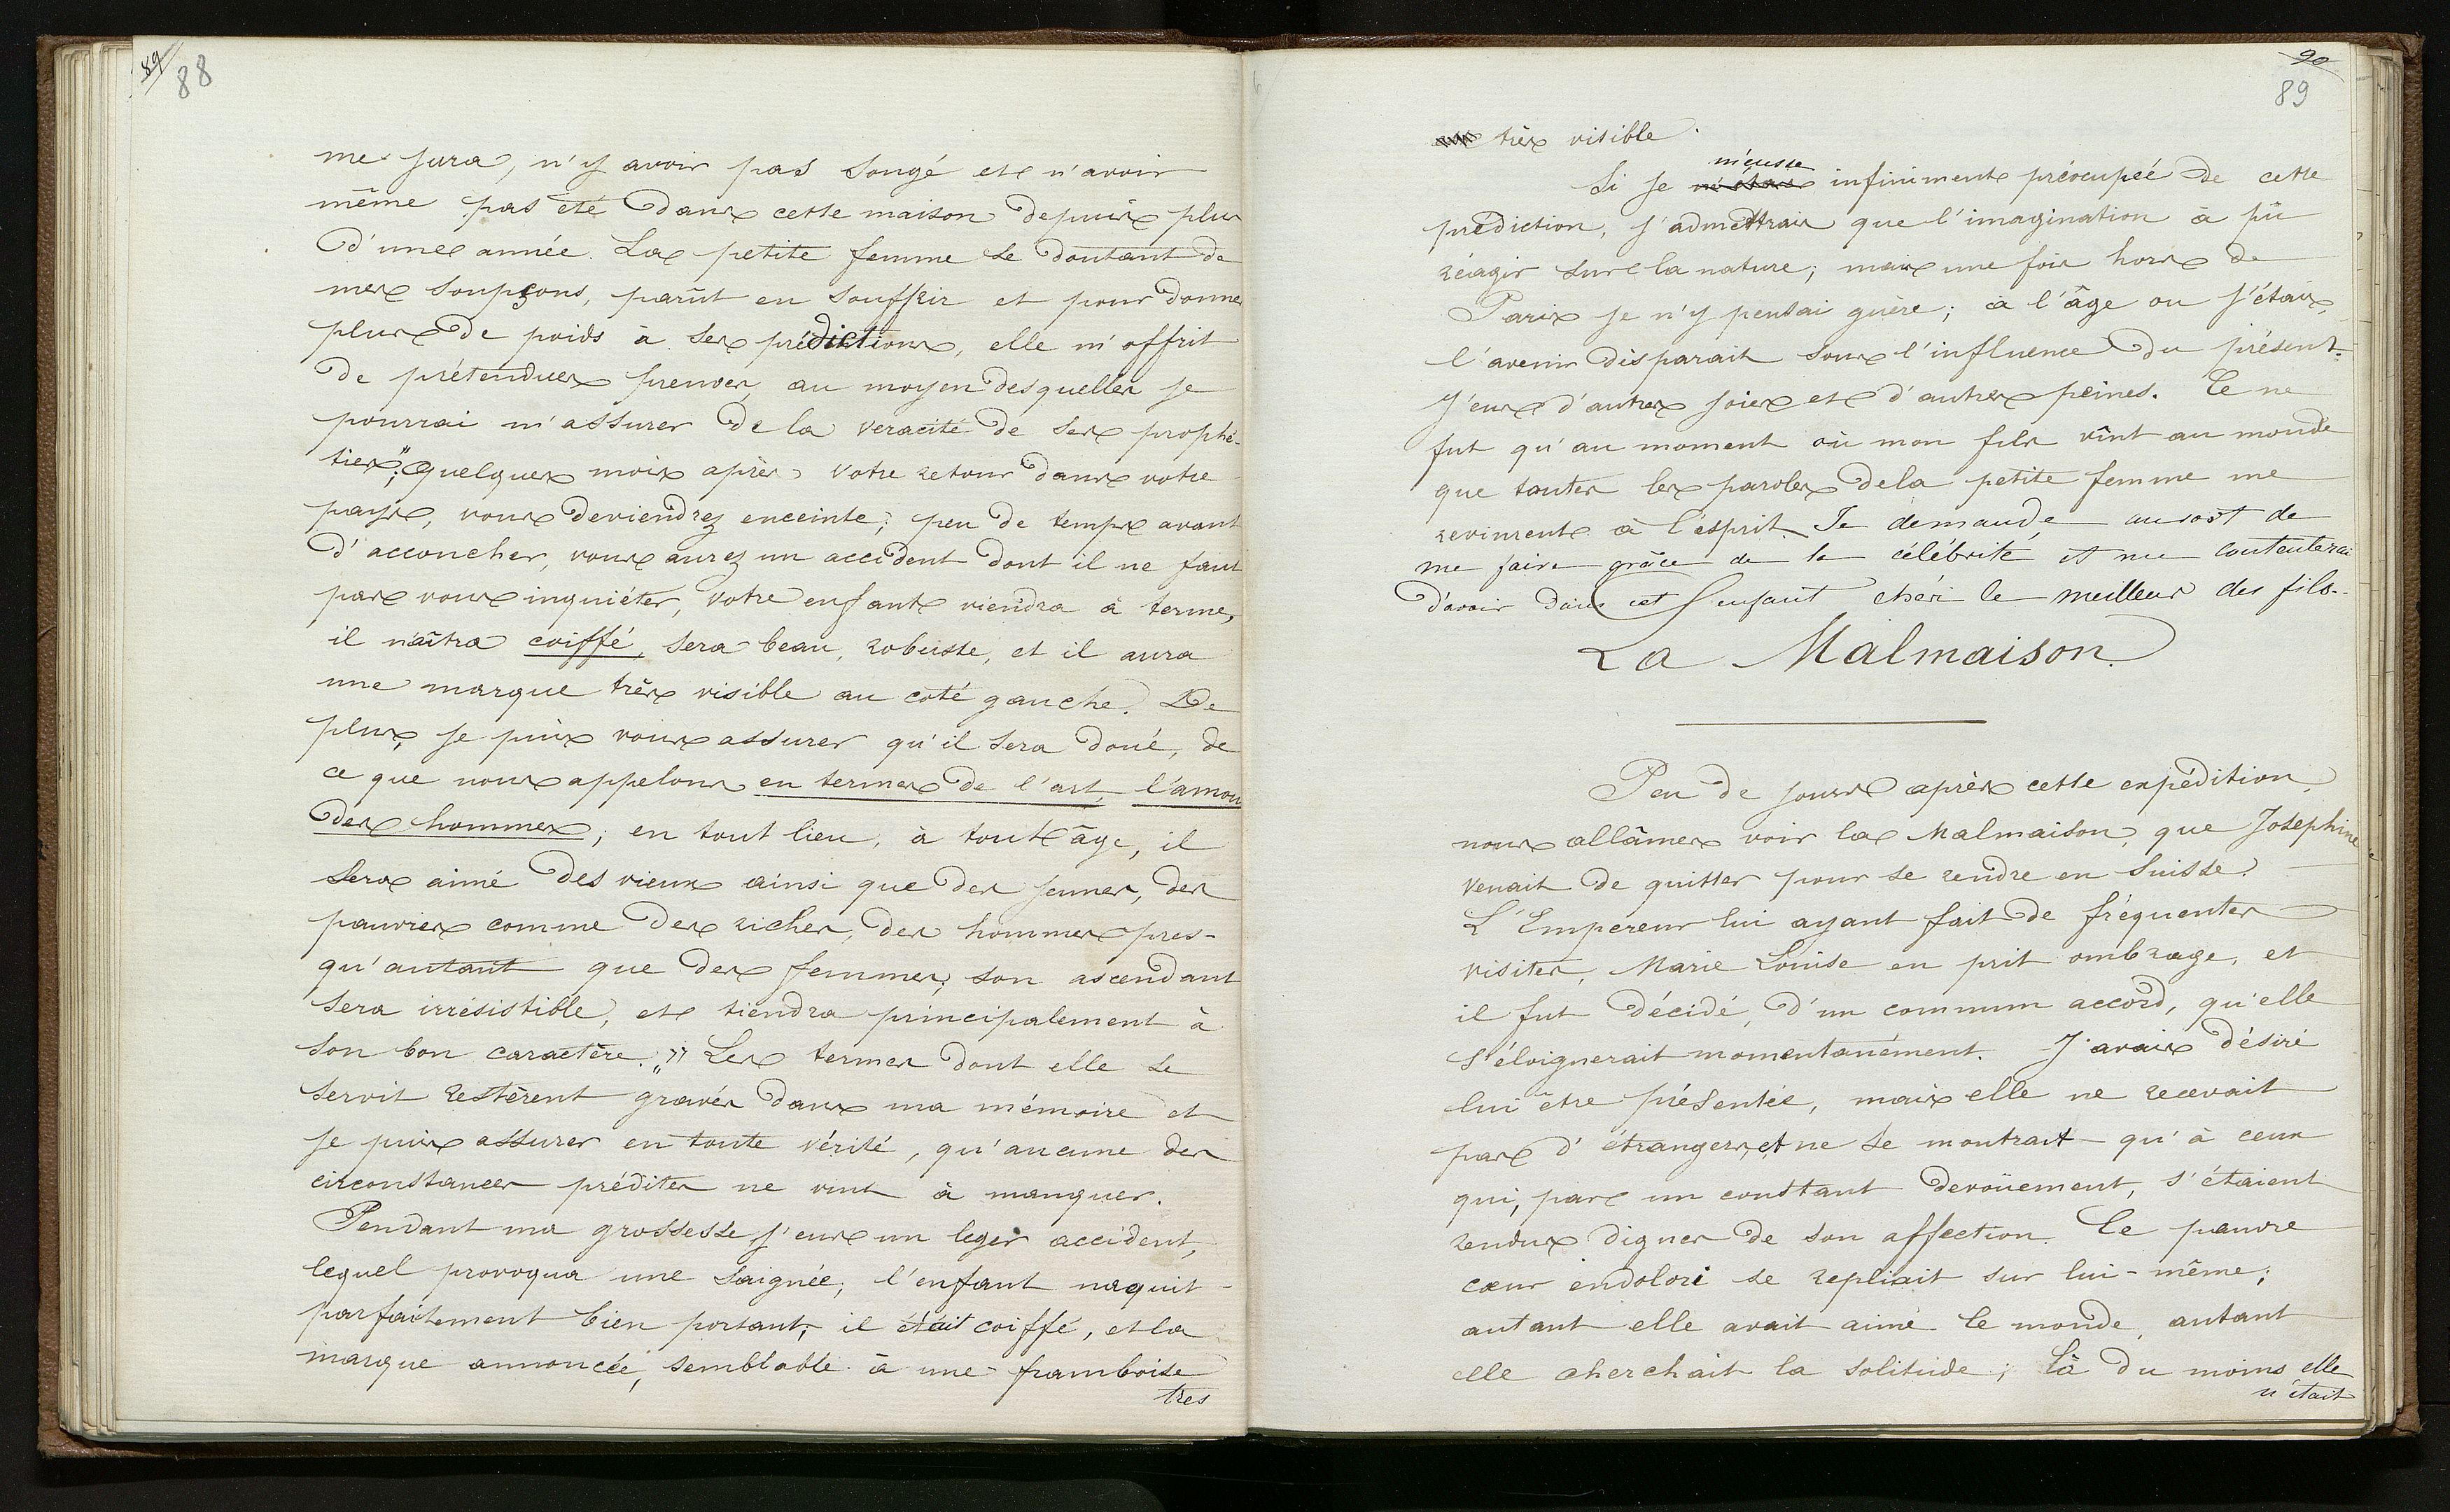 89
88
me jura, n'y avoir pas songé et n'avoir
même pas été dans cette maison depuis plus
d'une année. La petite femme se doutant de
mes soupçons, parût en souffrir et pour donner
plus de poids à ses prédictions, elle m'offrit
de prétendues preuves, au moyen desquelles je
pourrai m'assurer de la veracité de ses prophé-
ties; "quelques mois après votre retour dans votre
pays, vous deviendrez enceinte; peu de temps avant
d'accoucher, vous aurez un accident dont il ne faut
pas vous inquiéter, votre enfant viendra à terme,
il naîtra coiffé, sera beau, robuste, et il aura
une marque très visible au coté gauche. De
plus, je puis vous assurer qu'il sera doué, de
ce que nous appelons en termes de l'art, l'amour
des hommes; en tout lieu, à tout âge, il
sera aimé des vieux ainsi que des jeunes, des
pauvres comme des riches, des hommes pres-
qu'autant que des femmes; son ascendant
sera irrésistible, et tiendra principalement à
son bon caractère." Les termes dont elle se
servit restèrent gravés dans ma mémoire et
je puis assurer en toute vérité, qu'aucune des
circonstances prédites ne vint à manquer.
Pendant ma grossesse, j'eus un leger accident,
lequel provoqua une saignée; l'enfant naquit
parfaitement bien portant; il était coiffé, et la
marque annoncée, semblable à une framboise
tres
90
89
très visible.
m'eusse
Si je m'étais infiniment préocupée de cette
prédiction, j'admettrais que l'imagination à pû
réagir sur la nature; mais une fois hors de
Paris je n'y pensai guère; à l'âge ou j'étais,
l'avenir disparait sous l'influence du présent.
J'eus d'autres joies et d'autres peines. Ce ne
fut qu'au moment où mon fils vînt au monde
que toutes les paroles de la petite femme me
revinrent à l'esprit. Je demande au sort de
me faire grâce de la célébrité et me contenterai
d'avoir dans cet enfant chéri le meilleur des fils.
La Malmaison.
Peu de jours après cette expédition,
nous allâmes voir la Malmaison, que Josephine
venait de quitter pour se rendre en Suisse.
L'Empereur lui ayant fait de fréquentes
visites, Marie Louise en prit ombrage, et
il fut décidé, d'un commun accord, qu'elle
s'éloignerait momentanément. J'avais désiré
lui être présentée, mais elle ne recevait
pas d'étrangers, et ne se montrait qu'à ceux
qui, par un constant devoüement, s'étaient
rendus dignes de son affection. Ce pauvre
cœur endolori se repliait sur lui-même;
autant elle avait aimé le monde, autant
elle cherchait la solitude; là du moins elle
n'était